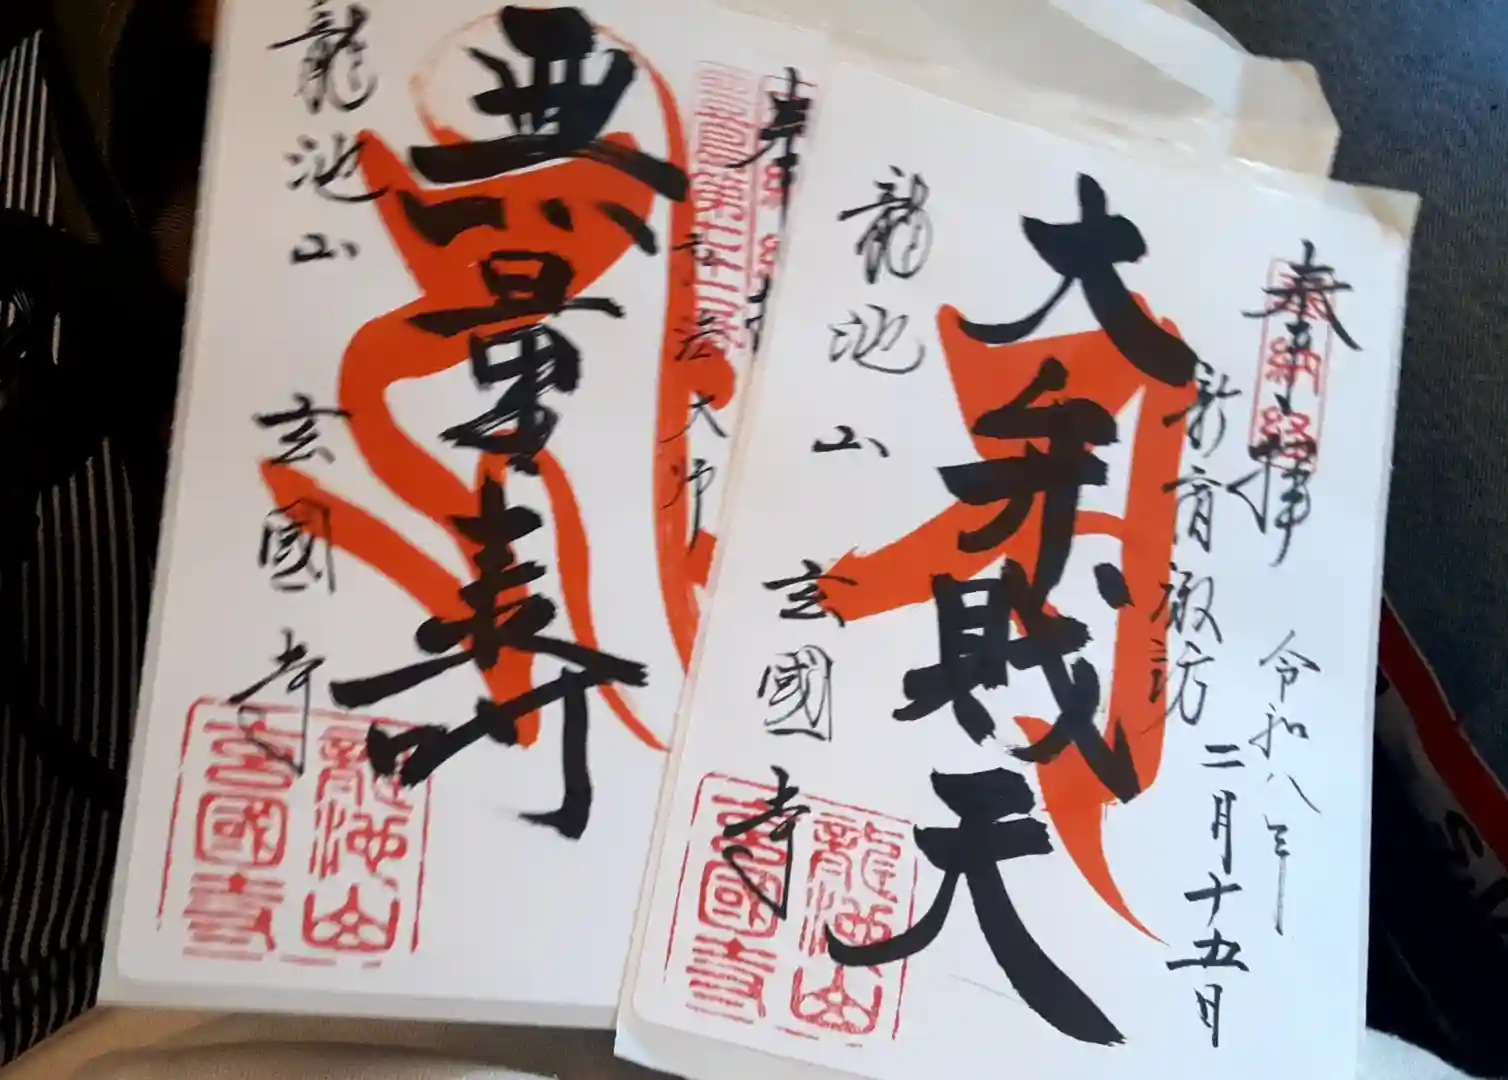 奉拝
納経
令和八年
二月十五日
新宿諏訪
大弁財天
龍池山
玄國寺
龍池山
玄國寺
奉
弘法大師
無量寿
龍池山
玄國寺
龍池山
玄國寺